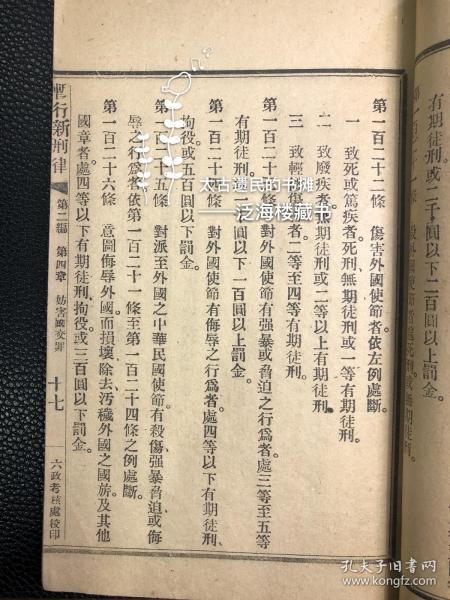 有期徒刑或二千圓以下二百圓以上罰金。
第一百二十二條 傷害外國使節者依左例處斷。
一 致死或篤疾者死刑無期徒刑或一等有期徒刑。
二 致廢疾者無期徒刑或二等以上有期徒刑。
三 致輕微傷害者二等至四等有期徒刑。
第一百二十三條 對外國使節有强暴脅迫之行爲者處三等至五等
有期徒刑或一千圓以下一百圓以上罰金。
第一百二十四條 對外國使節有侮辱之行爲者處四等以下有期徒刑、
拘役或五百圓以下罰金。
第一百二十五條 對派至外國之中華民國使節有殺傷强暴脅迫或侮
辱之行爲者依第一百二十一條至第一百二十四條之例處斷。
第一百二十六條 意圖侮辱外國而損壞除去汚穢外國之國旂及其他
國章者處四等以下有期徒刑拘役或三百圓以下罰金。
暫行新刑律 第二編 第四章 妨害國交罪 十七 六政考核處校印
太古遺民的书摊
——泛海楼藏书
孔夫子旧书网